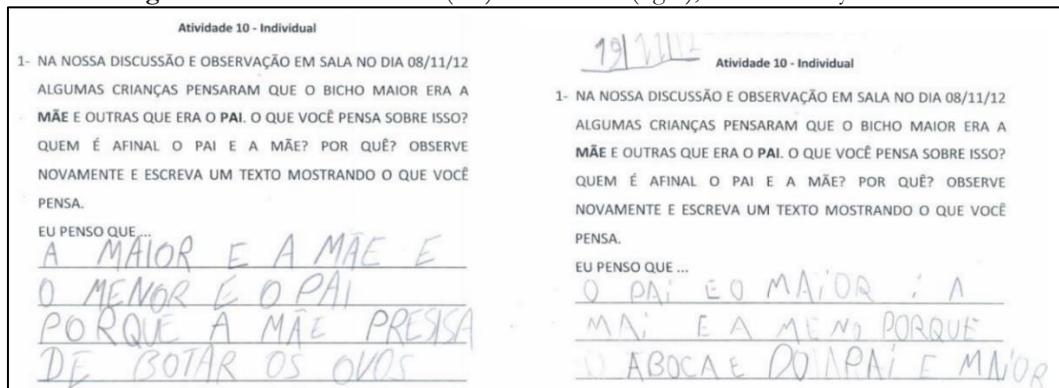 Atividade 10 - Individual
1- NA NOSSA DISCUSSÃO E OBSERVAÇÃO EM SALA NO DIA 08/11/12
ALGUMAS CRIANÇAS PENSARAM QUE O BICHO MAIOR ERA A
MÃE E OUTRAS QUE ERA O PAI. O QUE VOCÊ PENSA SOBRE ISSO?
QUEM É AFINAL O PAI E A MÃE? POR QUÊ? OBSERVE
NOVAMENTE E ESCREVA UM TEXTO MOSTRANDO O QUE VOCÊ
PENSA.
EU PENSO QUE ...
A MAIOR E A MÃE E
O MENOR E O PAI
PORQUE A MÃE PRESISA
DE BOTAR OS OVOS
19/11/12
Atividade 10 - Individual
1- NA NOSSA DISCUSSÃO E OBSERVAÇÃO EM SALA NO DIA 08/11/12
ALGUMAS CRIANÇAS PENSARAM QUE O BICHO MAIOR ERA A
MÃE E OUTRAS QUE ERA O PAI. O QUE VOCÊ PENSA SOBRE ISSO?
QUEM É AFINAL O PAI E A MÃE? POR QUÊ? OBSERVE
NOVAMENTE E ESCREVA UM TEXTO MOSTRANDO O QUE VOCÊ
PENSA.
EU PENSO QUE ...
O PAI E O MAIOR : A
MAI E A MENO PORQUE
ABOCA E DO PAI E MAIOR